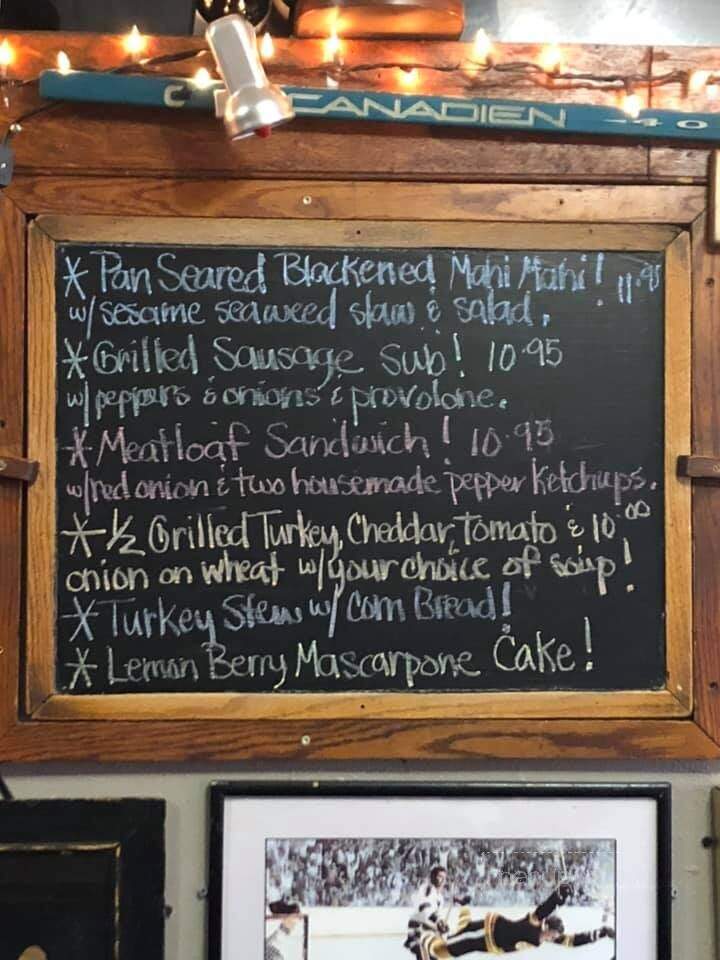 CANADIEN
* Pan Seared Blackened Mahi Mahi! 11.95
w/ sesame seaweed slaw & salad.
* Grilled Sausage Sub! 10.95
w/ peppers & onions & provolone.
* Meatloaf Sandwich! 10.95
w/ red onion & two housemade pepper ketchups.
* 1/2 Grilled Turkey, Cheddar, Tomato & 10.00
onion on wheat w/ your choice of soup!
* Turkey Stew w/ Corn Bread!
* Lemon Berry Mascarpone Cake!